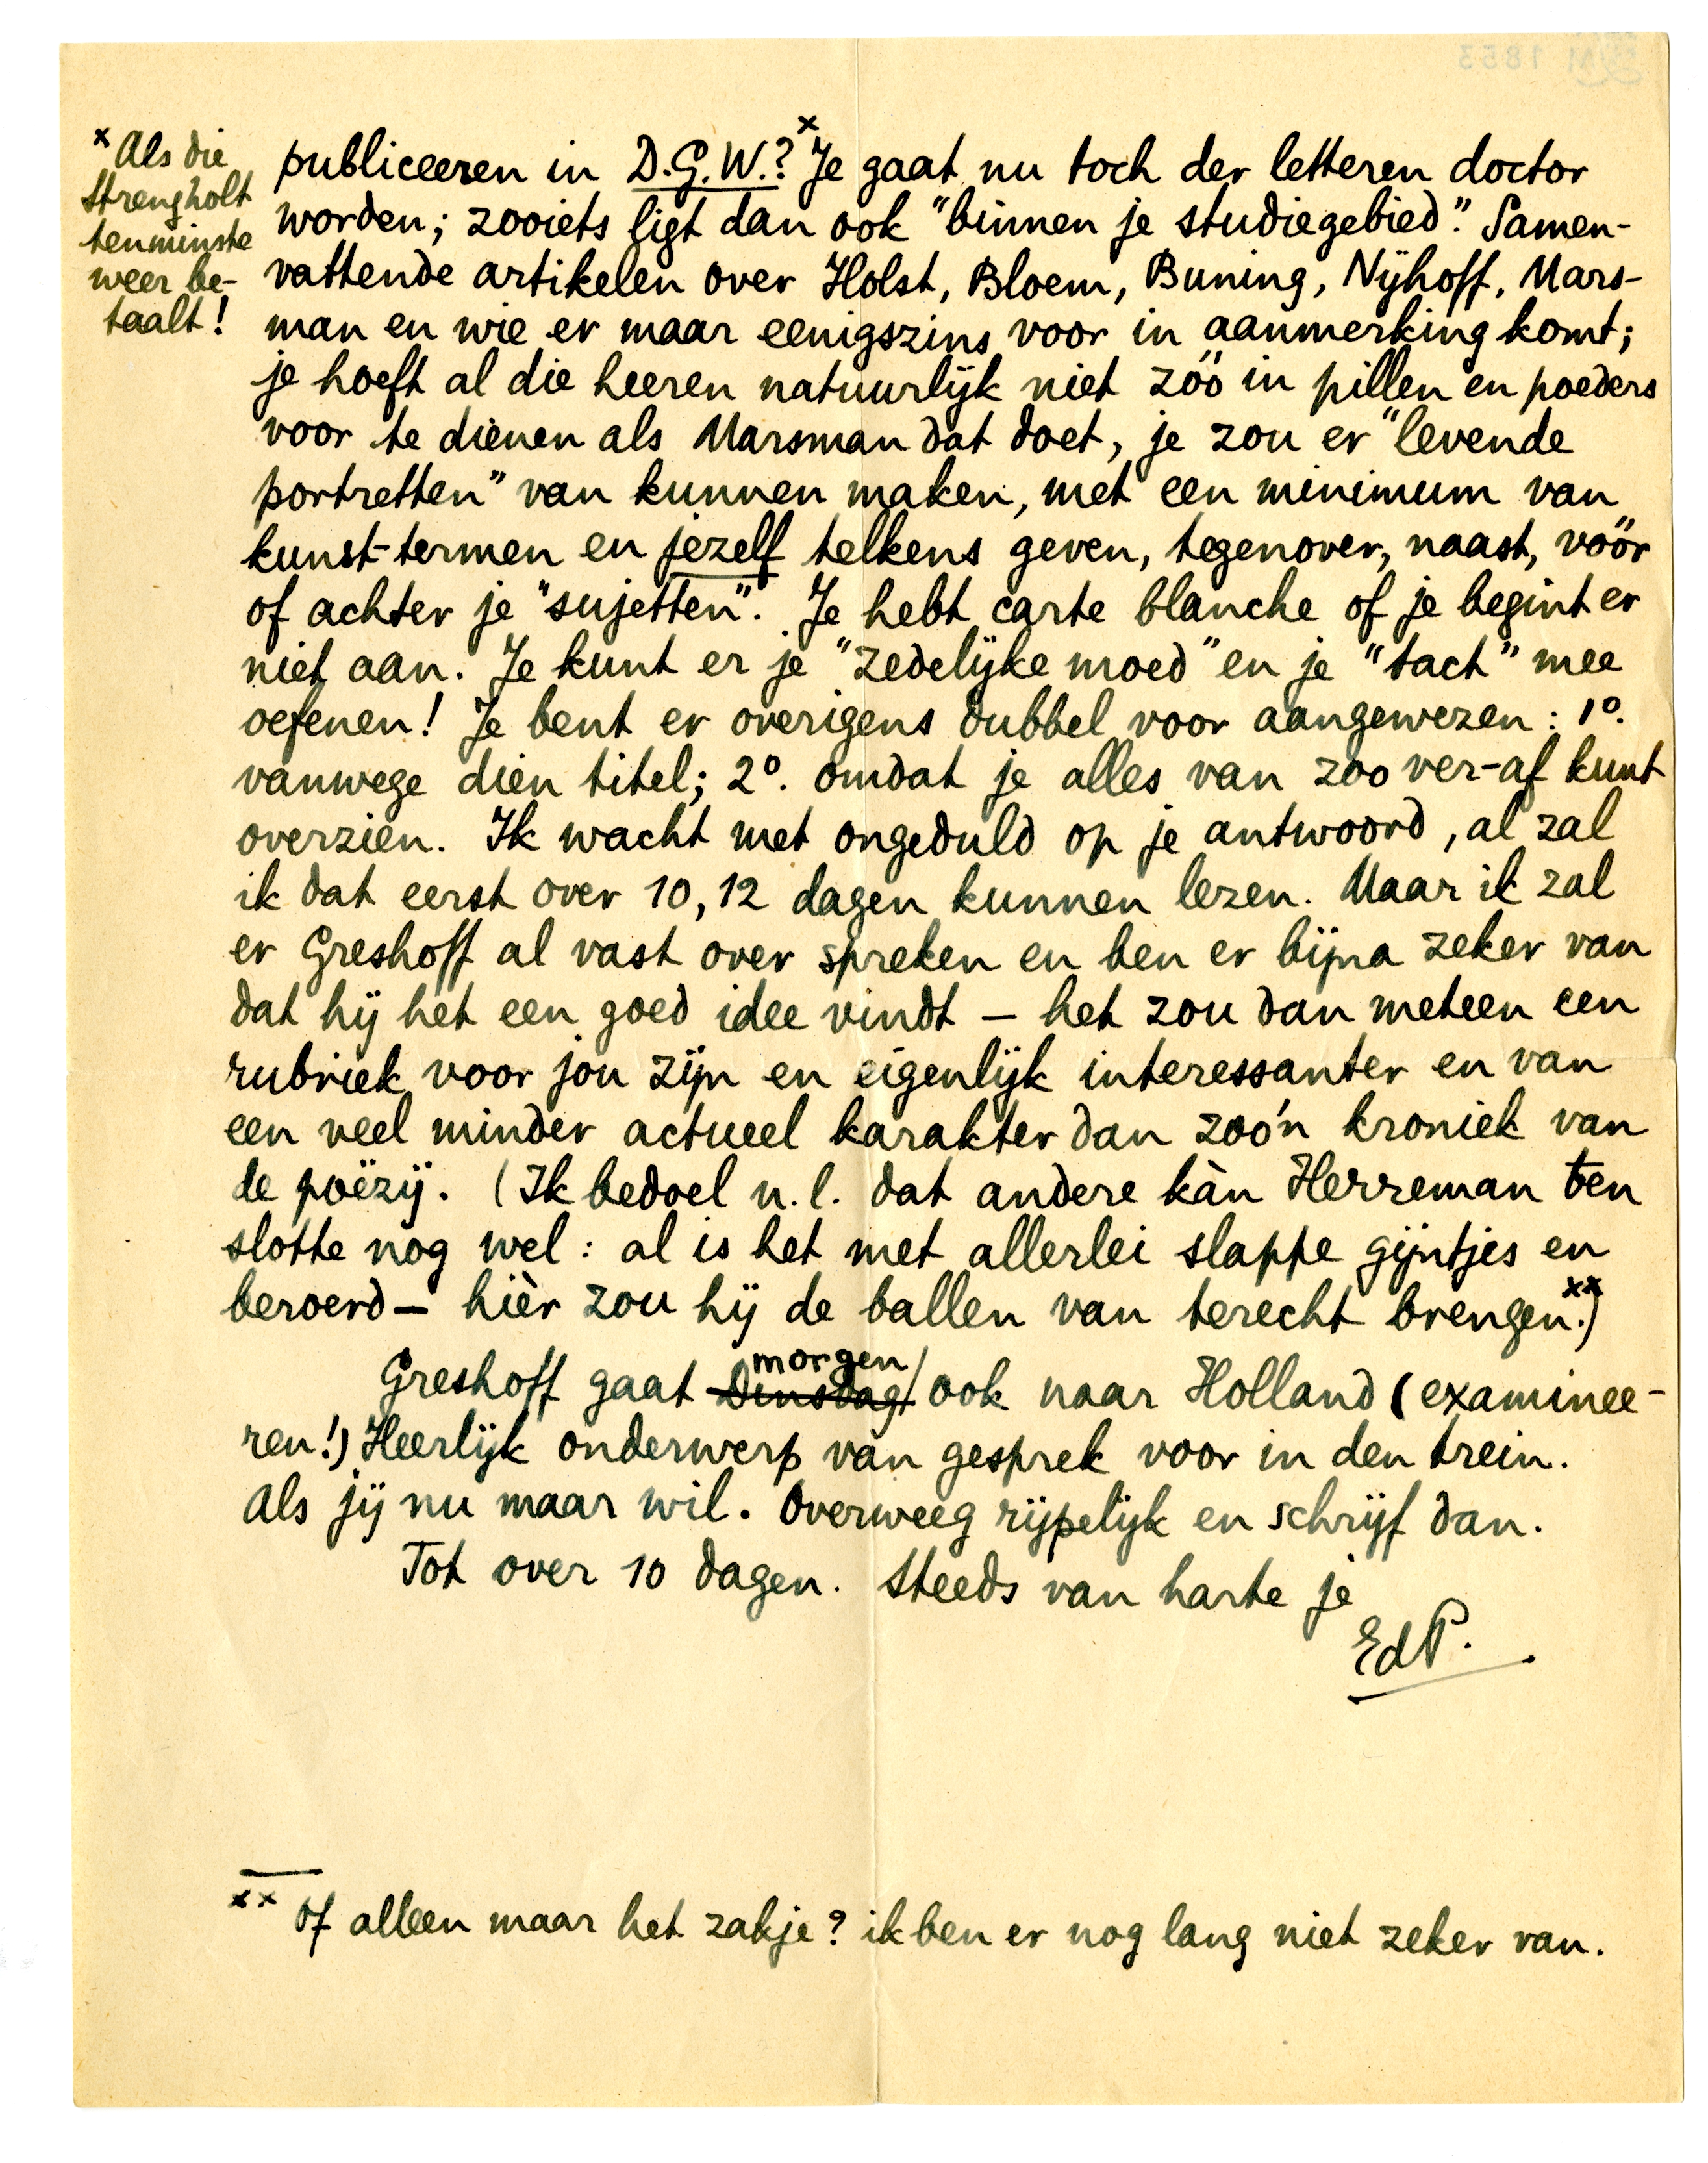 x Als die
Strengholt
tenminste
weer be-
taalt!
publiceeren in D.G.W.?x Je gaat nu toch der letteren doctor
worden; zooiets ligt dan ook "binnen je studiegebied". Samen-
vattende artikelen over Holst, Bloem, Buning, Nijhoff, Mars-
man en wie er maar eenigszins voor in aanmerking komt;
je hoeft al die heeren natuurlijk niet zóó in pillen en poeders
voor te dienen als Marsman dat doet, je zou er "levende
portretten" van kunnen maken, met een minimum van
kunst-termen en jezelf telkens geven, tegenover, naast, vóór
of achter je "sujetten". Je hebt carte blanche of je begint er
niet aan. Je kunt er je "zedelijke moed" en je "tact" mee
oefenen! Je bent er overigens dubbel voor aangewezen: 1o.
vanwege dien titel; 2o. omdat je alles van zoo ver-af kunt
overzien. Ik wacht met ongeduld op je antwoord, al zal
ik dat eerst over 10, 12 dagen kunnen lezen. Maar ik zal
er Greshoff al vast over spreken en ben er bijna zeker van
dat hij het een goed idee vindt – het zou dan meteen een
rubriek voor jou zijn en eigenlijk interessanter en van
een veel minder actueel karakter dan zoo'n kroniek van
de poëzij. (Ik bedoel n.l. dat andere kàn Herreman ten
slotte nog wel: al is het met allerlei slappe gijntjes en
beroerd – hièr zou hij de ballen van terecht brengen.xx)
morgen
Greshoff gaat Dinsdag ook naar Holland (examinee-
ren!) Heerlijk onderwerp van gesprek voor in den trein.
Als jij nu maar wil. Overweeg rijpelijk en schrijf dan.
Tot over 10 dagen. Steeds van harte je
EdP.
xx Of alleen maar het zakje? ik ben er nog lang niet zeker van.